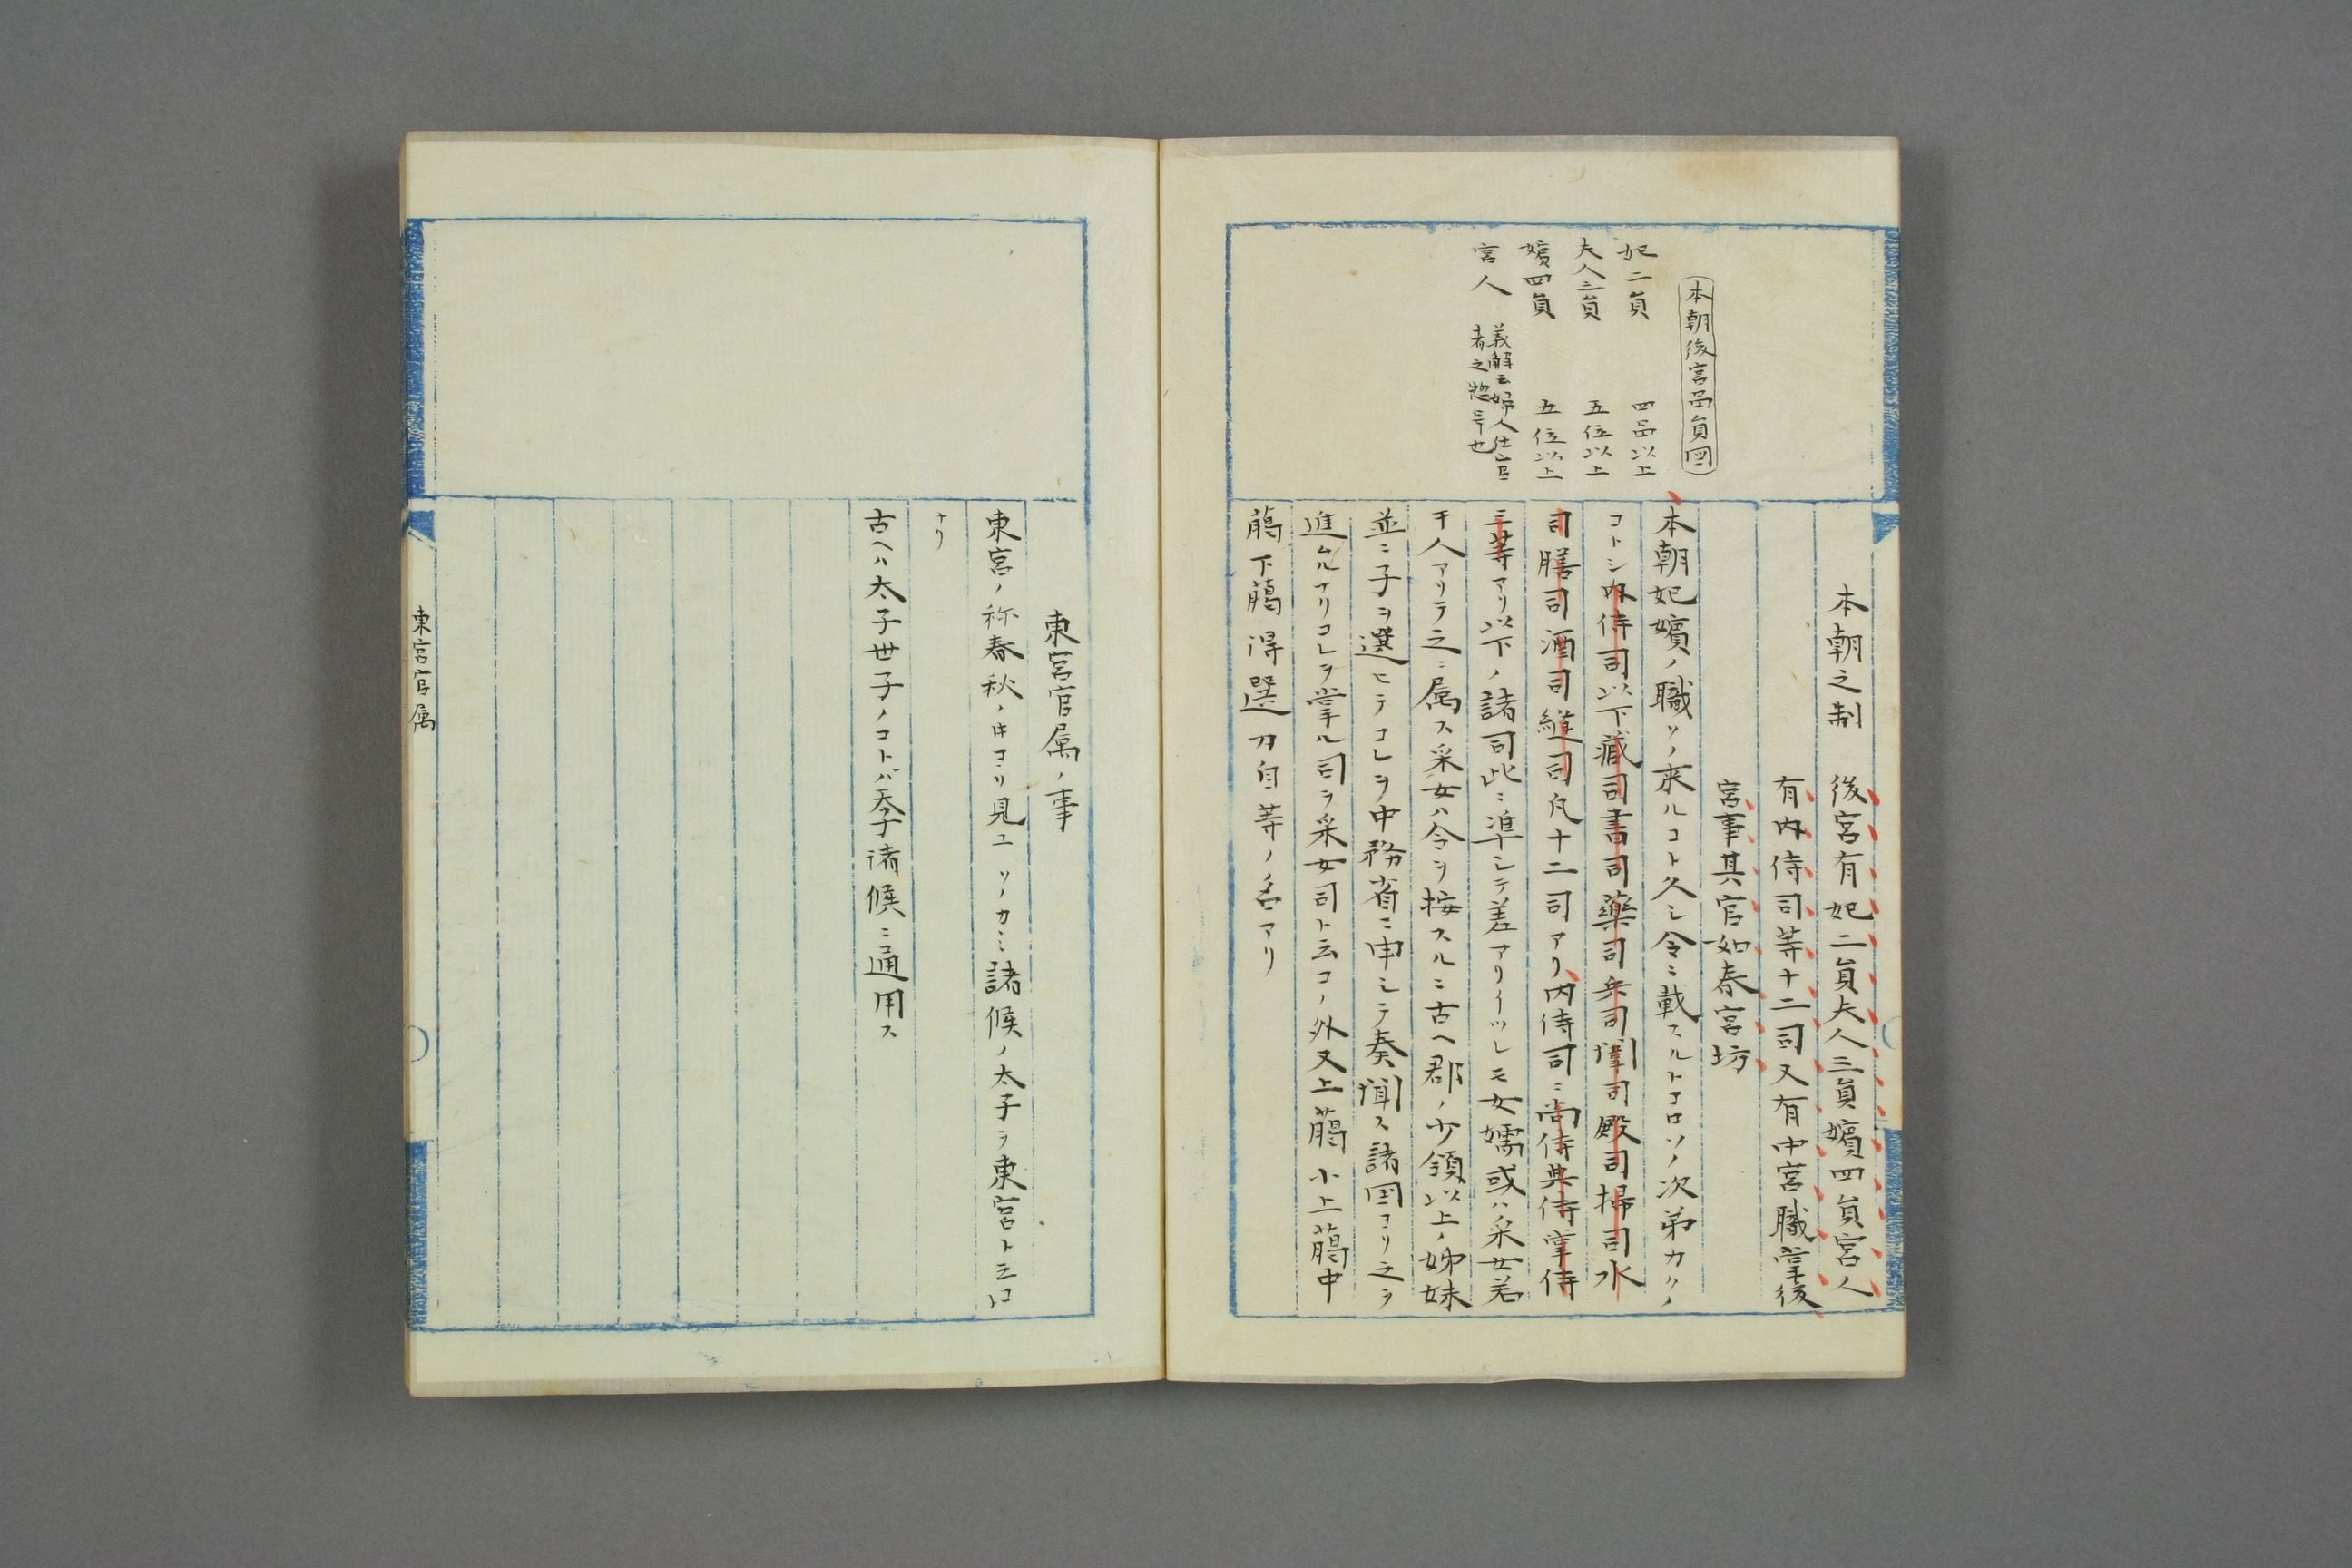 本朝後宮品員図
妃二員　四品以上
夫人三員　五位以上
嬪四員　五位以上
宮人　義解云婦人仕官
者之惣号也
本朝之制　後宮有妃二員夫人三員嬪四員宮人
有内侍司等十二司又有中宮職掌後
宮事其官如春宮坊
本朝妃嬪ノ職ソノ来ルコト久シ令ニ載スルトコロソノ次第カクノ
コトシ内侍司以下蔵司書司藥司兵司闈司殿司掃司水
司膳司酒司縫司凡十二司アリ内侍司ニ尚侍典侍掌侍
三等アリ以下ノ諸司此ニ準シテ差アリイツレモ女嬬或ハ采女若
干人アリテ之ニ属ス采女ハ令ヲ按スルニ古ヘ郡ノ少領以上ノ姉妹
並ニ子ヲ選ヒテコレヲ中務省ニ申シテ奏聞ス諸国ヨリ之ヲ
進ムルナリコレヲ掌ル司ヲ采女司ト云コノ外又上﨟小上﨟中
﨟下﨟得選刀自等ノ名アリ
東宮官属ノ事
東宮ノ称春秋ノ時ヨリ見ユソノカミ諸侯ノ太子ヲ東宮ト云コト
ナリ
古ヘハ太子世子ノコトバ天子諸侯ニ通用ス
東宮官属